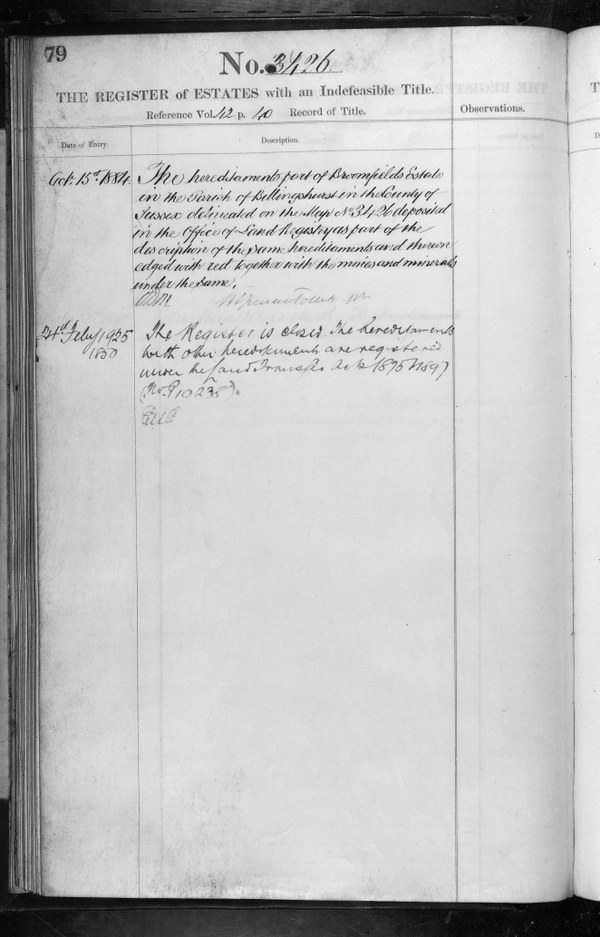 79
No. 3426
THE REGISTER of ESTATES with an Indefeasible Title.
Reference Vol. 42 p. 40 Record of Title.
Observations.
Date of Entry.
Description.
Oct. 15th 1884.
The hereditaments part of Broomfields Estate
in the Parish of Billingshurst in the County of
Sussex delineated on the Map No. 3426 deposited
in the Office of Land Registry as part of the
description of the same hereditaments and thereon
edged with red together with the mines and minerals
under the same.
24th Feby 1925
1850
The Register is closed. The hereditaments
with other hereditaments are registered
under the Land Transfer Acts 1875 & 1897
(No. P 10235).